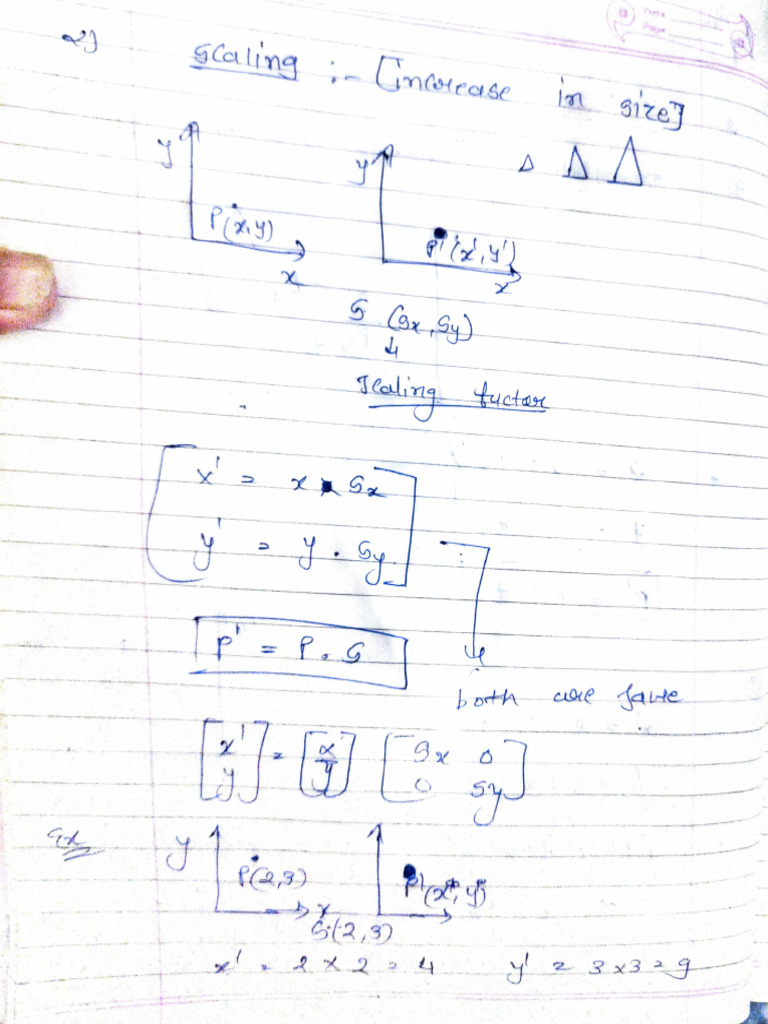 2)
Scaling :- [increase in size]
y
y
P(x,y)
P'(x',y')
x
x
S (Sx, Sy)
↓
Scaling factor
x' = x . Sx
y' = y . Sy
P' = P . S
both are same
[x' y] = [x y] [Sx 0 0 Sy]
Ex
y
P(2,3)
P'(x', y')
x
S(2,3)
x' = 2 x 2 = 4 y' = 3 x 3 = 9